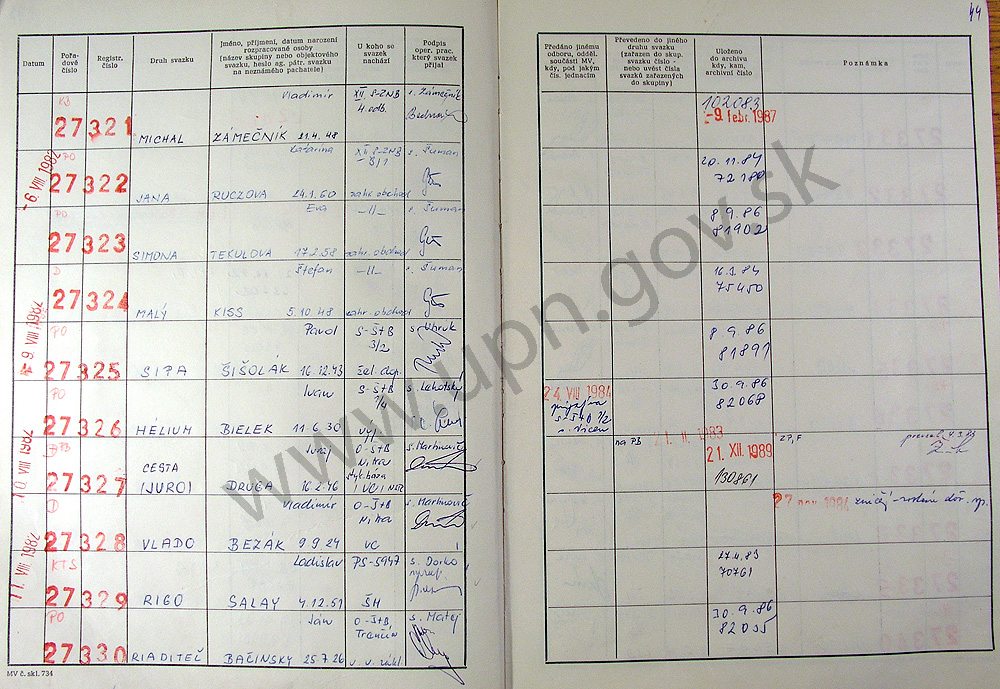 44
Datum
Pořadové číslo
Registr. číslo
Druh svazku
Jméno, příjmení, datum narození
rozpracované osoby
(název skupiny nebo objektového
svazku, heslo ag. pátr. svazku
na neznámého pachatele)
U koho se
svazek
nachází
Podpis
oper. prac.
který svazek
přijal
Předáno jinému
odboru, odděl.
součásti MV,
kdy, pod jakým
čís. jednacím
Převedeno do jiného
druhu svazku
(zařazen do skup.
svazku číslo -
nebo uvést čísla
svazků zařazených
do skupiny)
Uloženo
do archivu
kdy, kam,
archivní číslo
Poznámka
KB
Vladimír
XII S-ZNB
s. Zámečník
4. odb.
27 321
MICHAL
ZÁMEČNÍK 21.4.48
102083
-9. febr. 1987
-6 VIII 1982
PO
Katarína
XII S-ZNB
s. Šuman
27 322
JANA
RUCZOVA 24.1.60
zahr. obchod
20.11.84
72180
PO
Eva
-11-
s. Šuman
27 323
SIMONA
TEKULOVA 17.2.58
zahr. obchod
8.9.86
81902
D
Štefan
-11-
s. Šuman
27 324
MALÝ
KISS 5.10.48
zahr. obchod
75450
9 VIII 1982
PO
Pavol
S-ŠtB
3/2
27 325
SIPA
ŠIŠOLÁK 16.12.43
žel. dop.
8.9.86
81891
PO
Ivan
S-ŠtB
s. Lehotský
1/4
27 326
HÉLIUM
BIELEK 11.6.30
24 VIII 1984
S-ŠtB 1/2
30.9.86
82068
10 VIII 1982
PB
Juraj
O-ŠtB
s. Martinovič
Nitra
CESTA
27 327
(JURO)
DRUGA 16.2.46
na PB
21. II. 1983
21. XII. 1989
130861
ZP, F
D
Vladimír
O-ŠtB
s. Martinovič
Nitra
27 328
VLADO
BEZÁK 9.9.24
VC
27 nov. 1984
11 VIII 1982
KTS
Ladislav
PS-5947
s. Dorko
27 329
RIGÓ
SALAY 4.12.51
ŠH
27.4.83
70761
PO
Ján
O-ŠtB
s. Matej
Trenčín
27 330
RIADITEĽ
BAČINSKY 25.7.26
v. v. zákl.
30.9.86
82055
MV č. skl. 734
www.upn.gov.sk